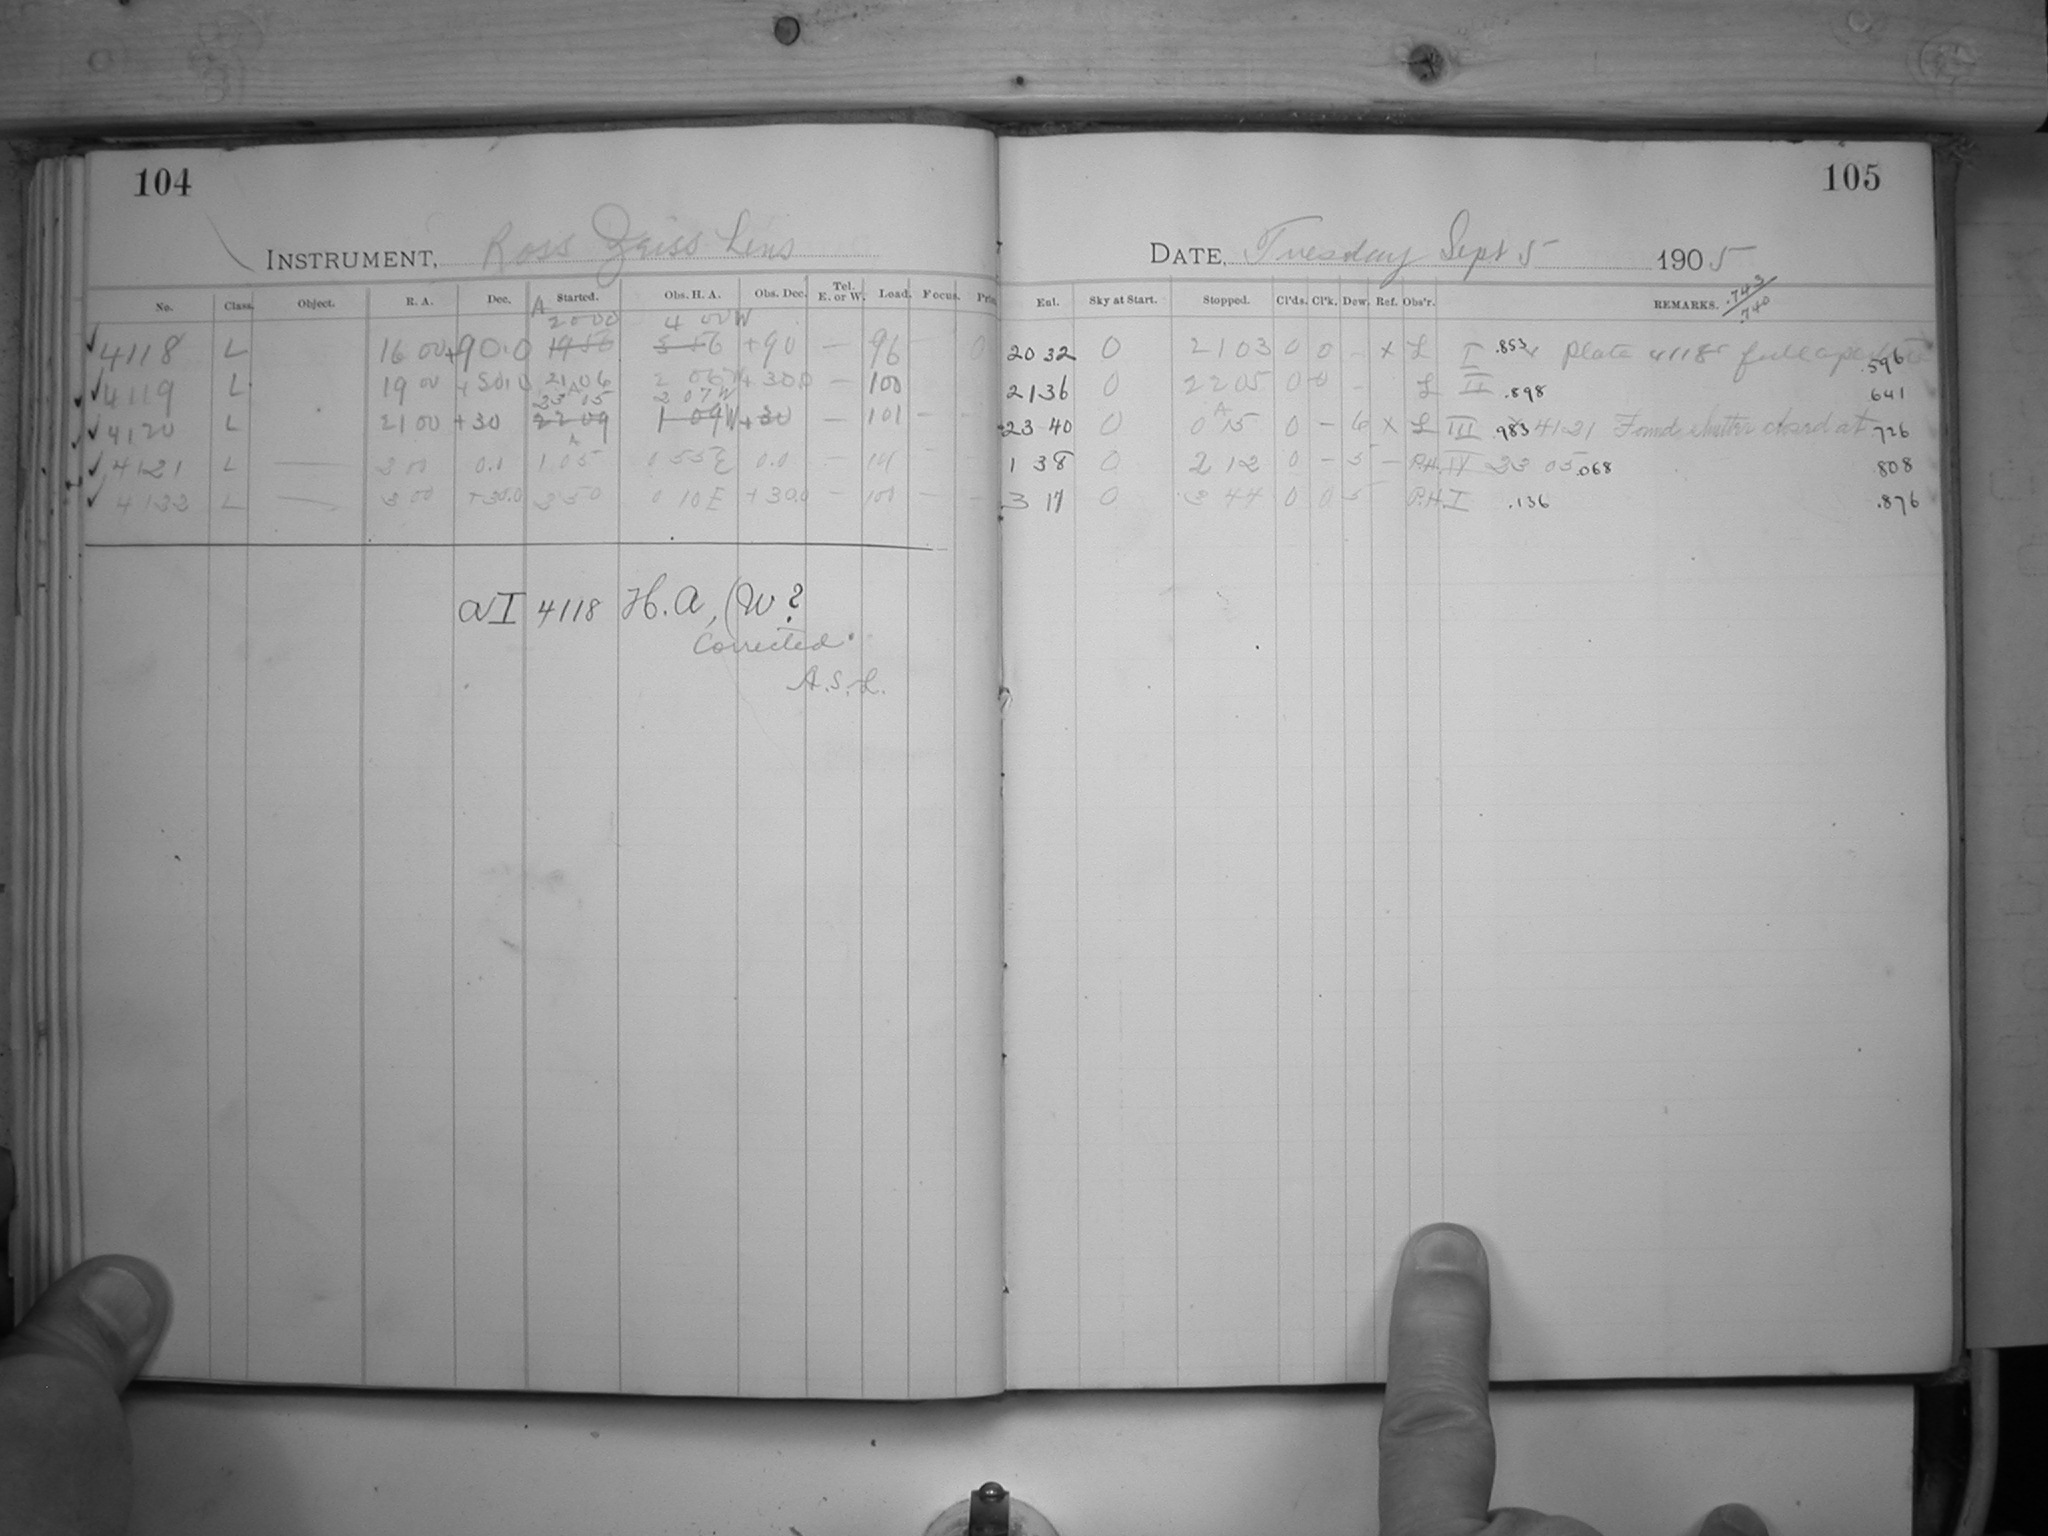 104
INSTRUMENT, Ross Zeiss Lens
No. Class. Object. R. A. Dec. Started. Obs. H. A. Obs. Dec. Tel. E. or W. Load. Focus.
A 20 00 4 00 W
4118 L 16 00 +90.0 19 56 +90 — 96 0
4119 L 19 00 21 06 — 100
23 05 2 07 W
4120 L 21 00 +30 22 09 1 09W +30 — 101 - -
4121 L — 0.0 1 05 0 55 E 0.0 — 101 - -
L — 3 00 +30.0 0 10 E +30.0 — 100 - -
aI 4118 H.a, (W?
Corrected
A.S.L.
105
DATE, Tuesday Sept 5 1905
.743/.740
Ent. Sky at Start. Stopped. Cl'ds. Cl'k. Dew. Ref. Obs'r. REMARKS.
20 32 0 21 03 0 0 - x L I .853 Plate 4118 full .596
21 36 0 22 05 0 0 - L II .898 641
23 40 0 0 15 0 - 6 x L III .983 4121 Found shutter closed at 726
1 38 0 2 12 0 - 5 - R.H. IV 23 05 .068 808
3 17 0 3 44 0 0 5 R.H. I .136 .876